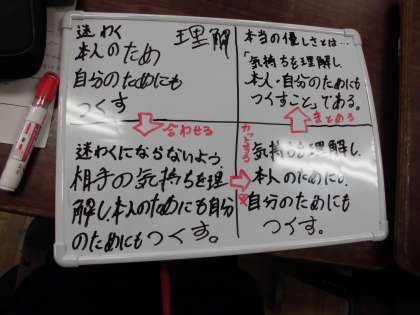 迷わく
理解
本人のため
自分のためにも
つくす
合わせる
迷わくにならないよう、
相手の気持ちを理
解し、本人のためにも自分
のためにもつくす。
カットする
気持ちを理解し、
本人のためにも、
自分のためにも
つくす。
まとめる
本当の優しさとは…
「気持ちを理解し、
本人・自分のためにも
つくすこと」である。